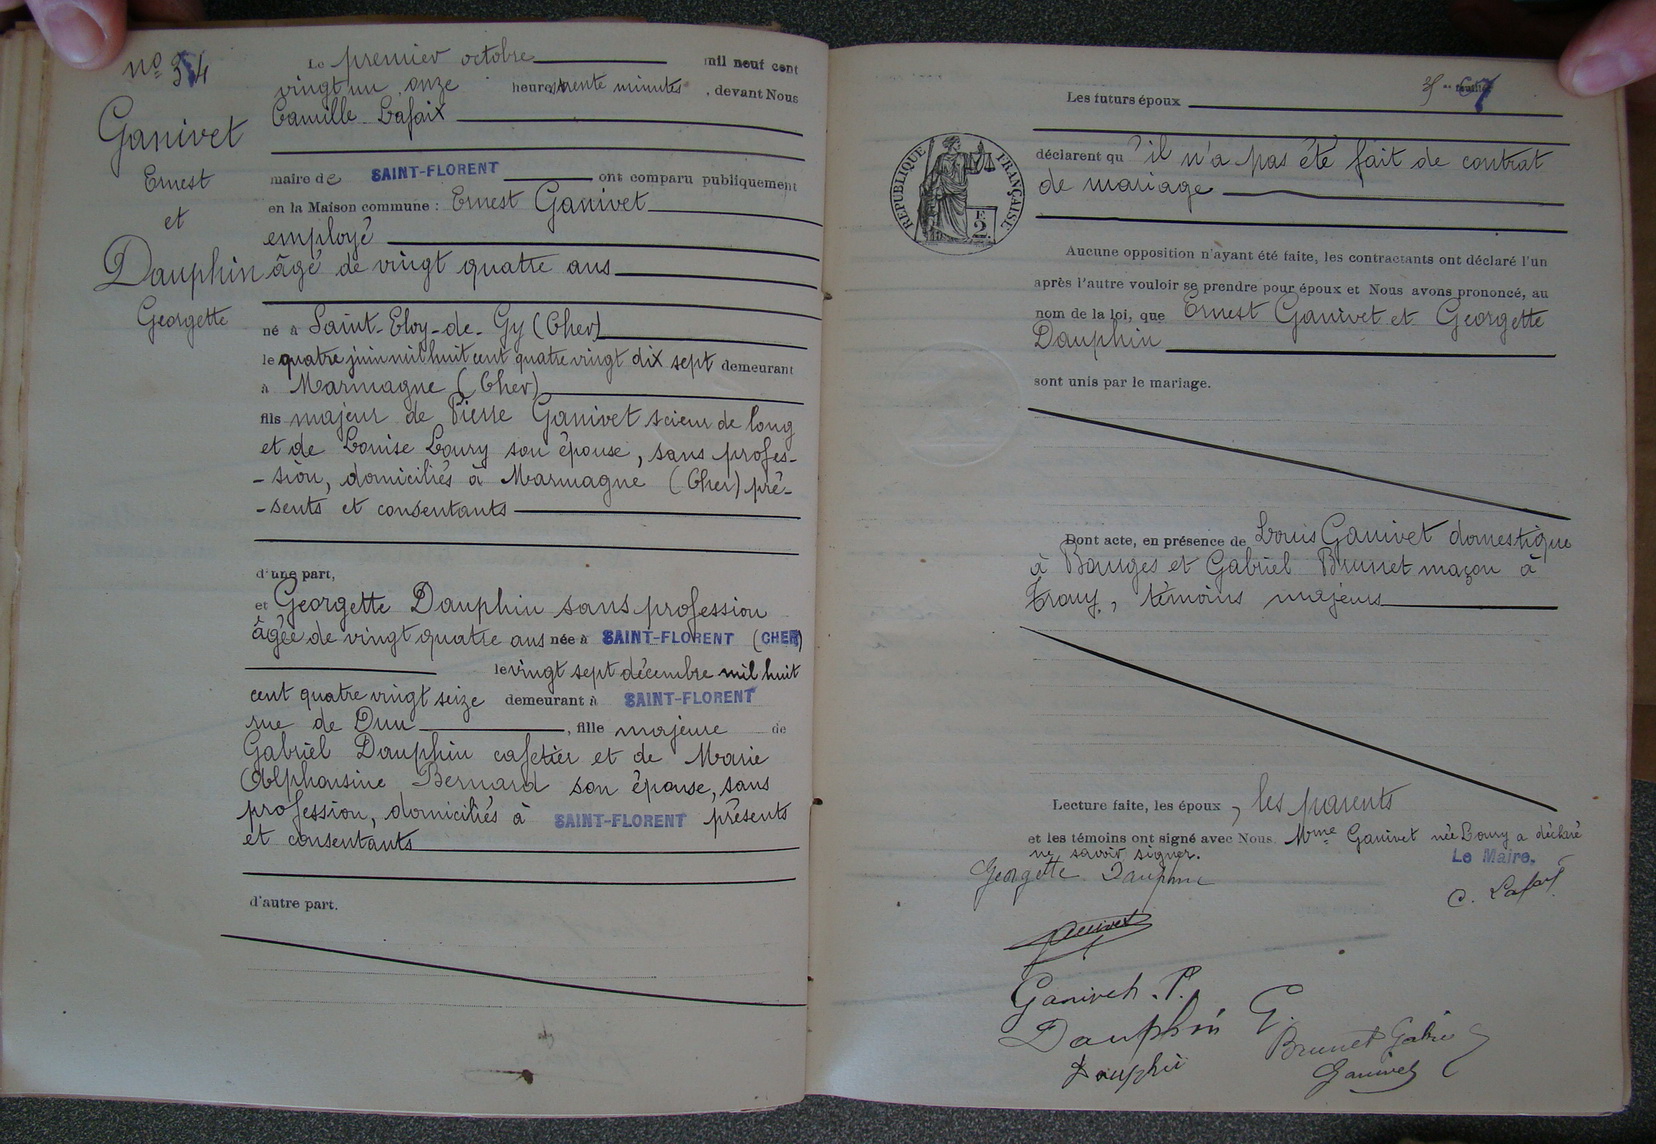 nº 34
Ganivet
Ernest
et
Dauphin
Georgette
Le premier octobre mil neuf cent
vingt un, onze heures trente minutes, devant Nous
Camille Lafaix
maire de SAINT-FLORENT ont comparu publiquement
en la Maison commune : Ernest Ganivet
employé
âgé de vingt quatre ans
né à Saint-Eloy-de-Gy (Cher)
le quatre juin mil huit cent quatre vingt dix sept demeurant
à Marmagne (Cher)
fils majeur de Pierre Ganivet scieur de long
et de Louise Loury son épouse, sans profes-
-sion, domiciliés à Marmagne (Cher) pré-
-sents et consentants
d'une part,
et Georgette Dauphin sans profession
âgée de vingt quatre ans née à SAINT-FLORENT (CHER)
le vingt sept décembre mil huit
cent quatre vingt seize demeurant à SAINT-FLORENT
rue de Dun, fille majeure de
Gabriel Dauphin cafetier et de Marie
Alphonsine Bernard son épouse, sans
profession, domiciliés à SAINT-FLORENT présents
et consentants
d'autre part.
feuillet
Les futurs époux
déclarent qu'il n'a pas été fait de contrat
de mariage
RÉPUBLIQUE FRANÇAISE
E
2
Aucune opposition n'ayant été faite, les contractants ont déclaré l'un
après l'autre vouloir se prendre pour époux et Nous avons prononcé, au
nom de la loi, que Ernest Ganivet et Georgette
Dauphin
sont unis par le mariage.
Dont acte, en présence de Louis Ganivet domestique
à Bourges et Gabriel Brunet maçon à
Trouy, témoins majeurs
Lecture faite, les époux, les parents
et les témoins ont signé avec Nous. Mme Ganivet née Loury a déclaré
ne savoir signer.
Le Maire,
Georgette Dauphin
C. Lafaix
Ganivet
Ganivet. P.
Dauphin G.
Brunet Gabriel
Dauphin
Ganivet